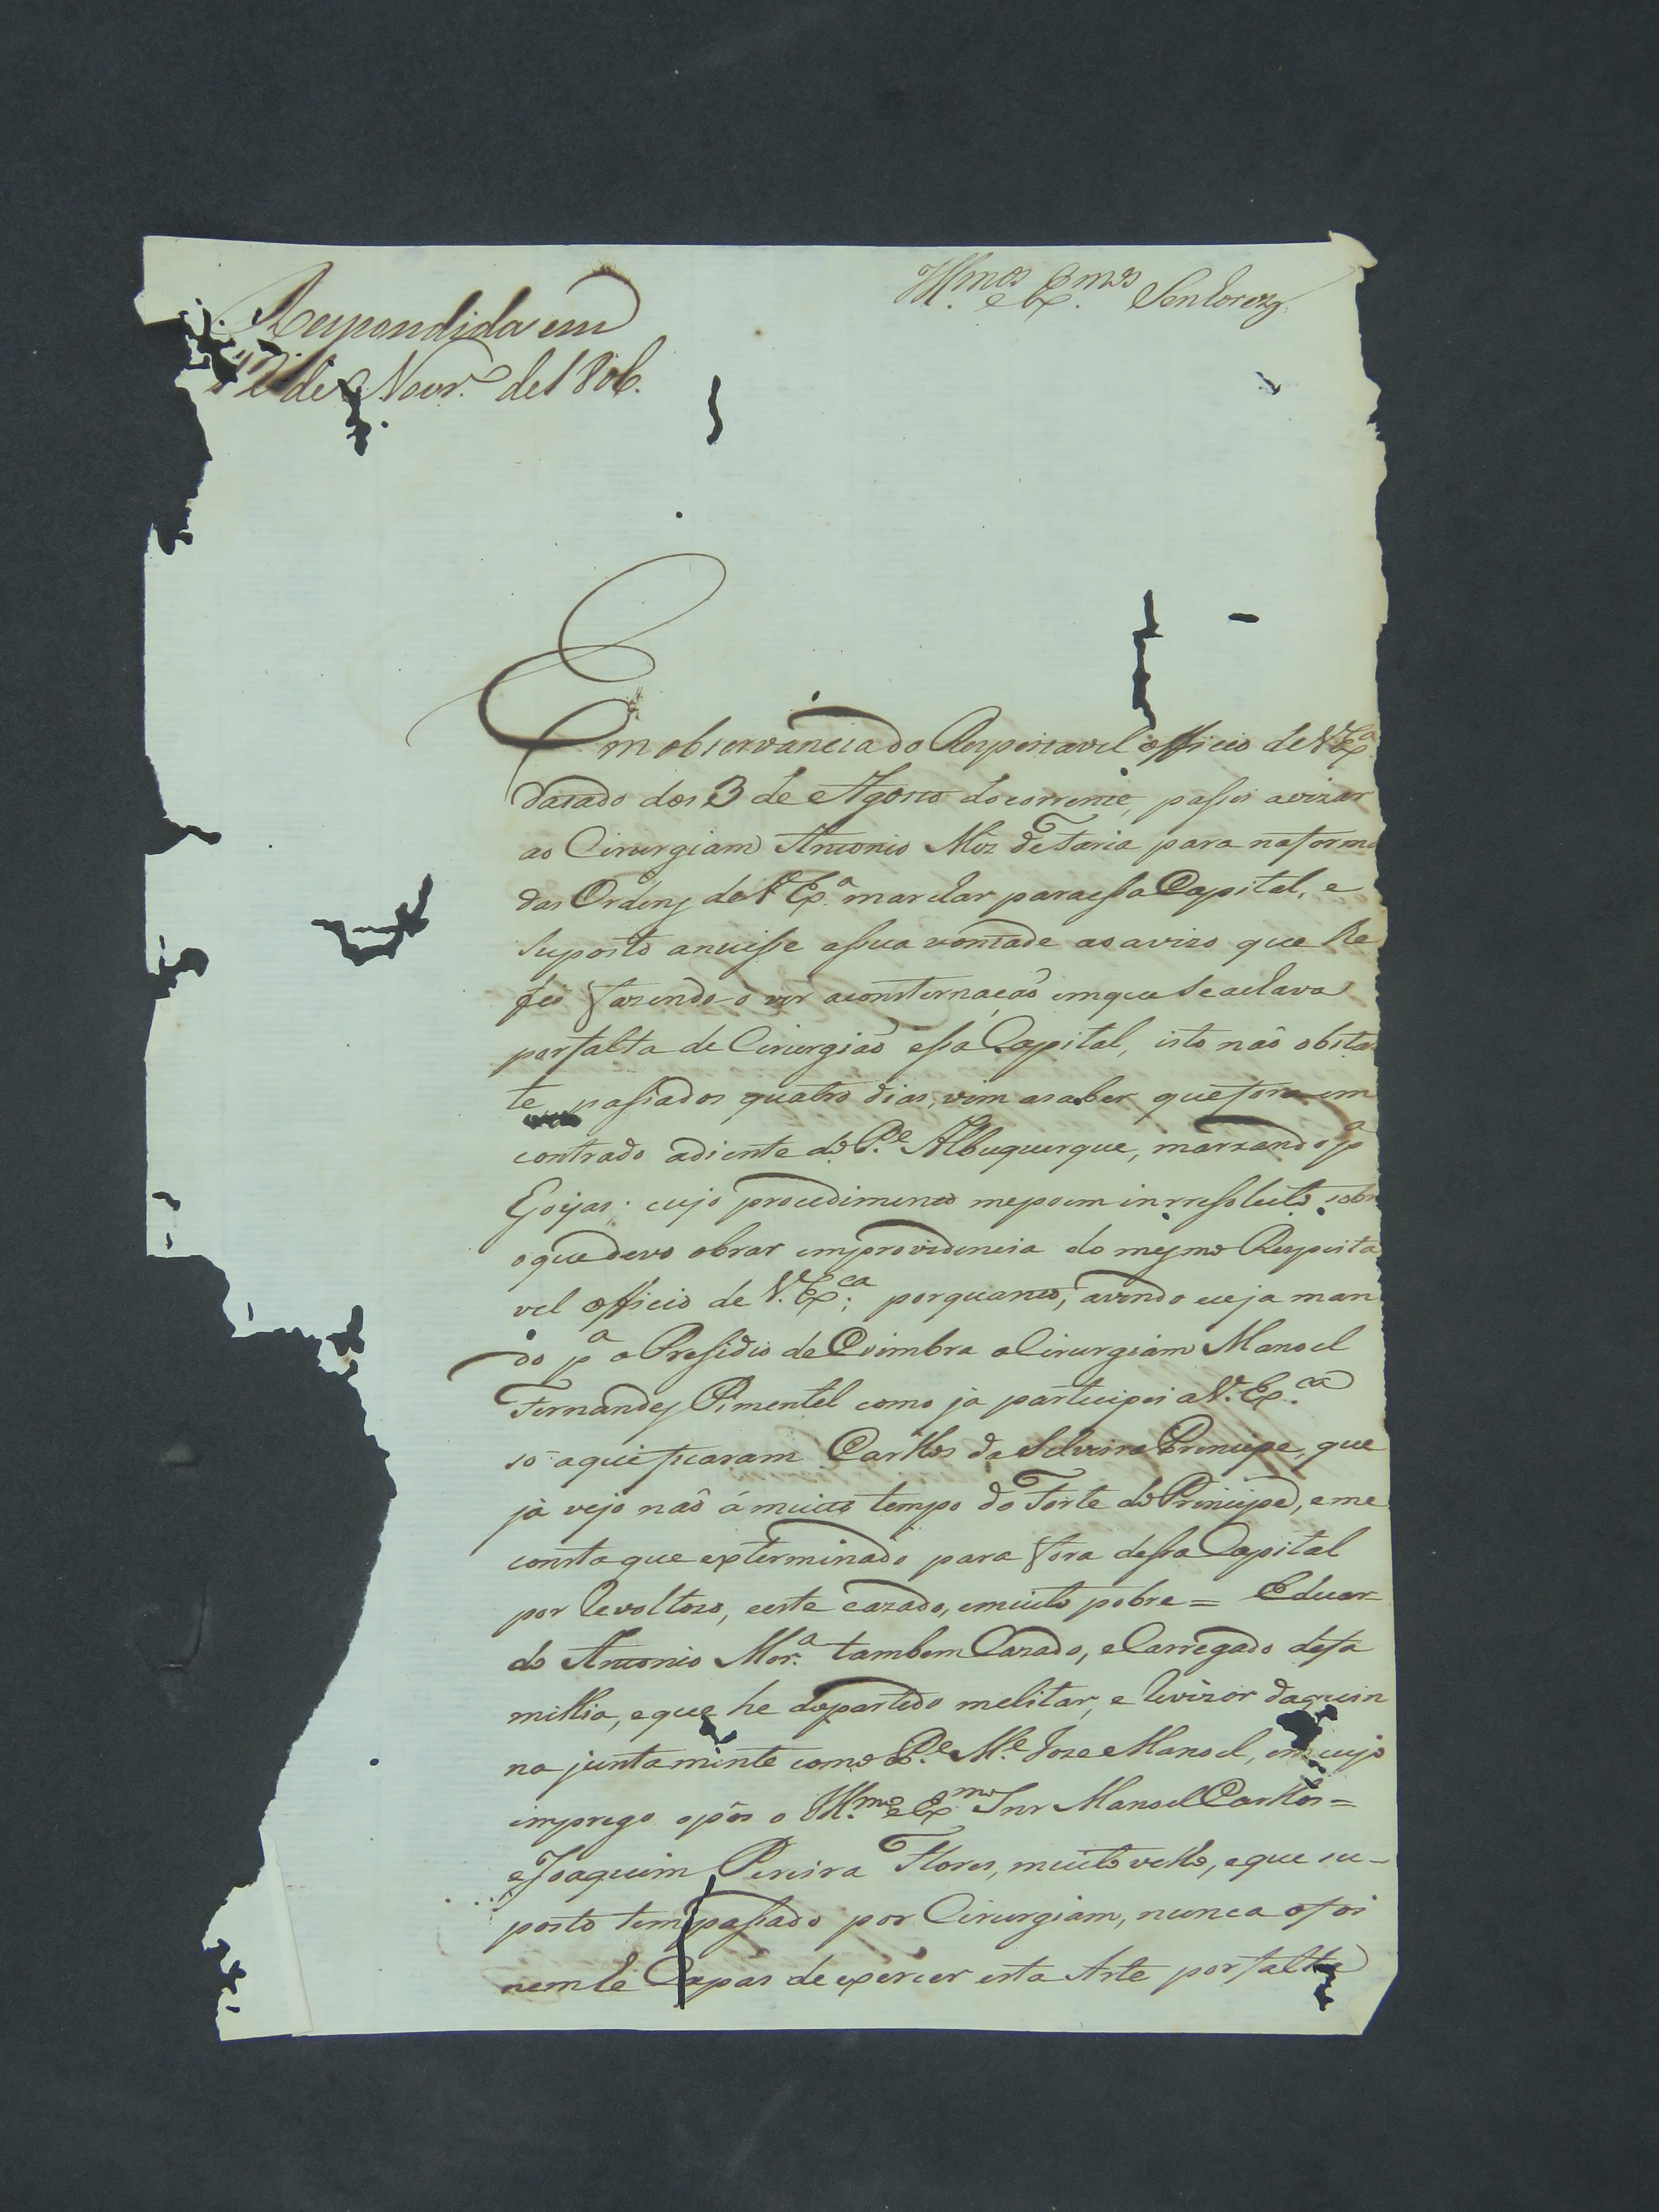 Illmos e Exmos Senhores
Respondida em
de Novro de 1806.
Em observancia do Respeitavel officio de V. Exa
datado dos 3 de Agosto do corrente, passei avizar
ao Cirurgiam Antonio Miz de Faria para na forma
das Ordens de V. Exa marchar para essa Capital, e
suposto anuisse assua vontade ao avizo que lhe
fis fazendo-o ver aconsternação em que se achava
por falta de Cirurgião essa Capital, isto não obstan
te passados quatro dias, vim asaber que fora em
contrado adiente do Pe Albuquerque, marxando pa
Goyas; cujo procedimento me poem inrresoluto sobre
o que devo obrar em providencia do mesmo Respeita
vel officio de V. Exca; por quanto, avendo eu ja man
do pa o Presidio de Coimbra o Cirurgiam Manoel
Fernandes Pimentel como ja participei a V. Exca
só aqui ficaram Carllos da Silveira Principe, que
já vejo não á muito tempo do Forte do Principe, e me
consta que exterminado para fora dessa Capital
por Revoltozo, e este cazado, e muito pobre = Eduar-
do Antonio Mora tambem Cazado, e Carregado de fa
millia, e que he do partido melitar, e Revizor da
na juntamente com o Pe Me Joze Manoel, em cujo
imprego o pôs o Illmo e Exmo Snr Manoel Carllos =
e Joaquim Pereira Flores, muito velho, e que su-
posto tem passado por Cirurgiam, nunca o foi
nem he Capás de exercer esta Arte por falta